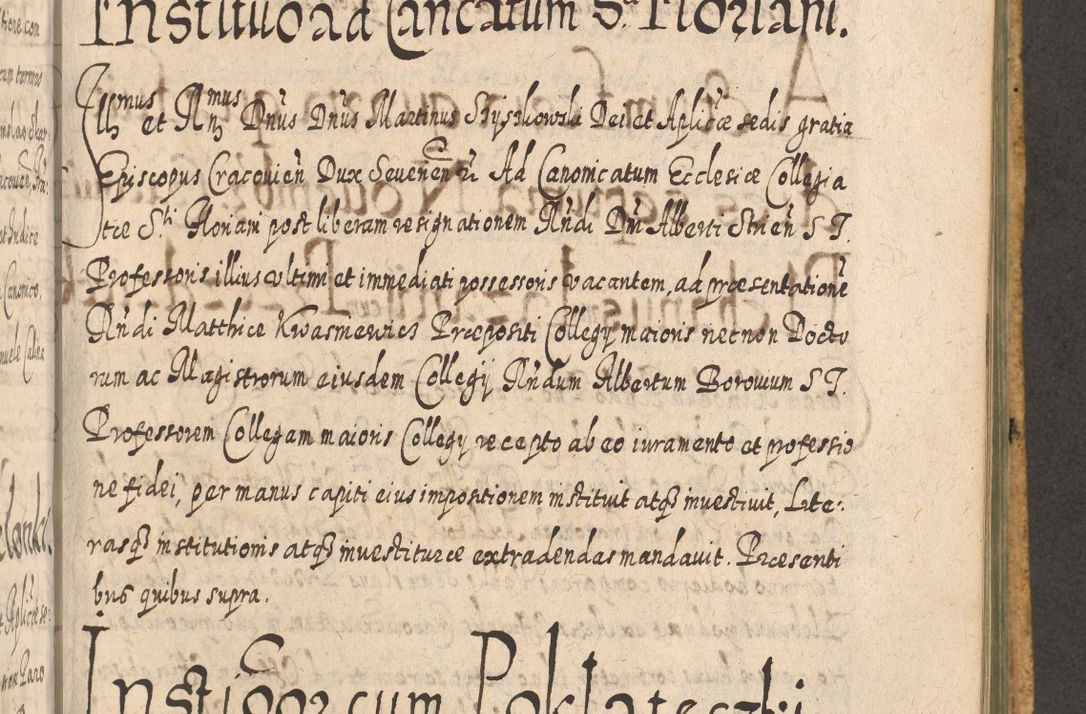 Institutio ad Cancatum S. Floriani.
Illmus et Rmus Dnus Dnus Martinus Szyszkowski Dei et Aplicæ sedis gratia
Episcopus Cracovien Dux Severien Ad Canonicatum Ecclesiæ Collegia
tæ Sti Floriani post liberam resignationem Rndi Dni Alberti Strien S T.
Professoris illius ultimi et immediati possessoris vacantem, ad præsentatione
Rndi Matthiæ Kwasniewics Præpositi Collegy maioris necnon Docto
rum ac Magistrorum eiusdem Collegij Rndum Albertum Borowium S T.
Professorem Collegam maioris Collegy recepto ab eo iuramento et professio
ne fidei, per manus capiti eius impositionem instituit atqз investivit, Lite:
rasqз institutionis atqз investituræ extradendas mandavit. Præsenti
bus quibus supra.
Poklateczki